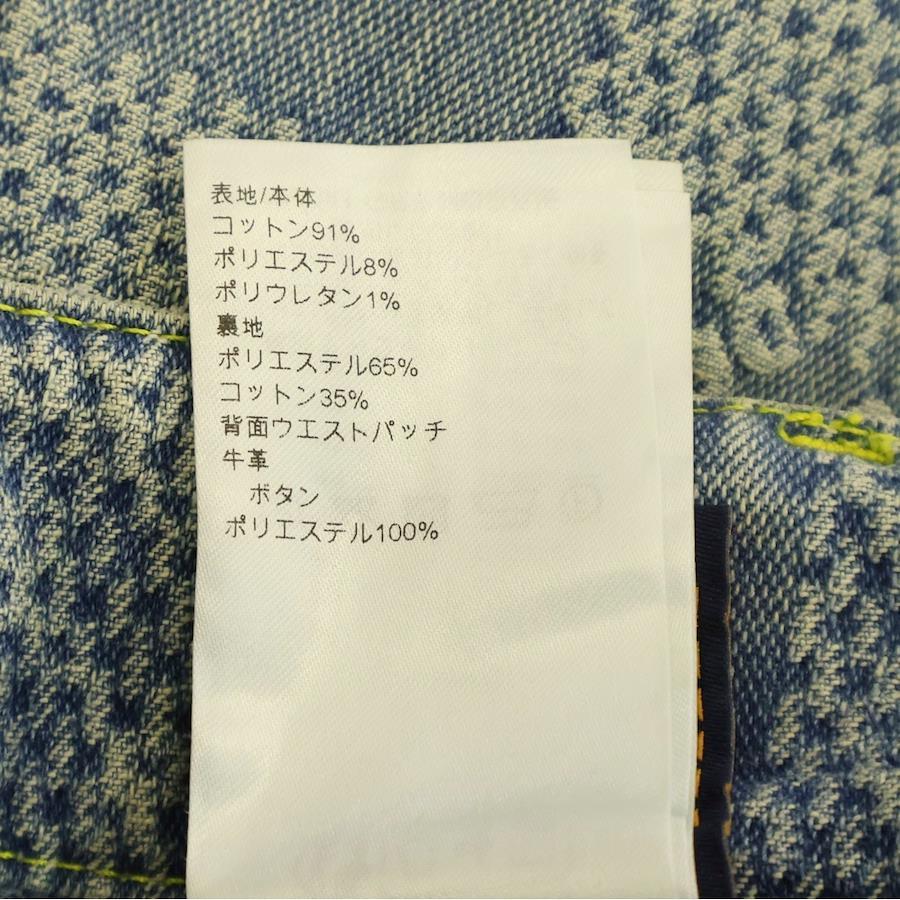 表地/本体
コットン91%
ポリエステル8%
ポリウレタン1%
裏地
ポリエステル65%
コットン35%
背面ウエストパッチ
牛革
ボタン
ポリエステル100%